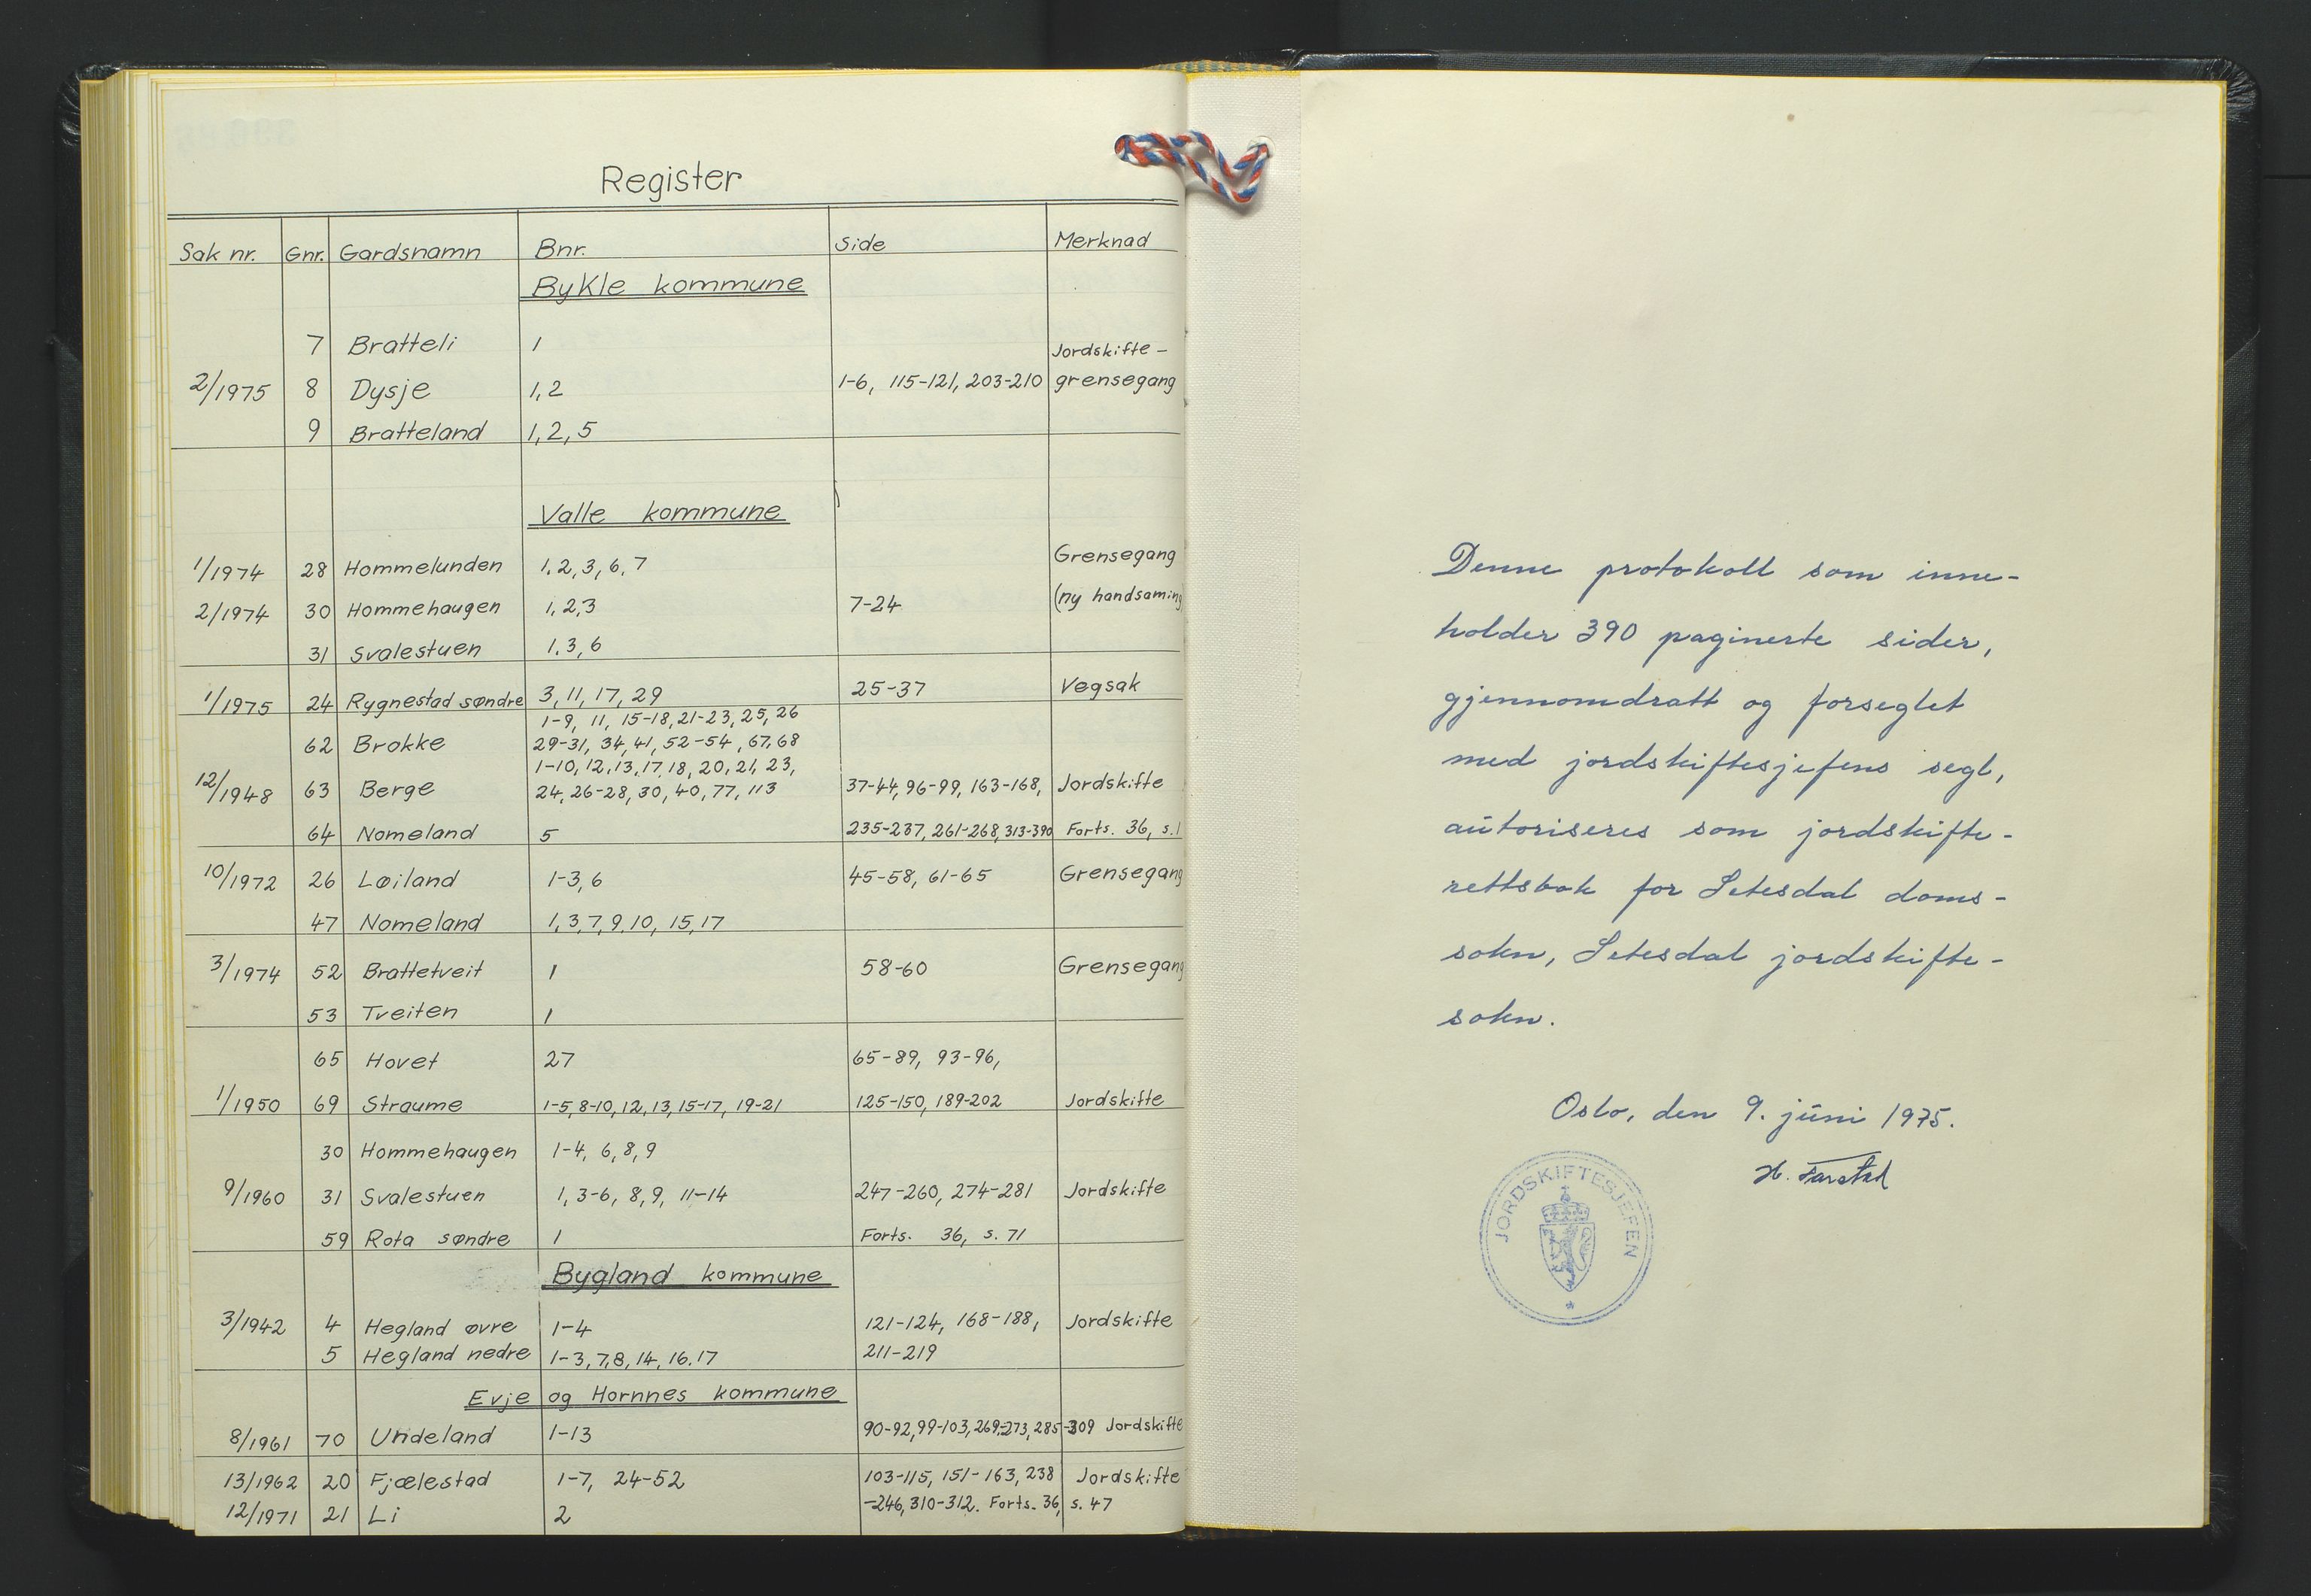 Register
Sak nr. Gnr. Gardsnamn Bnr. Side Merknad
Bykle kommune
7 Bratteli 1
Jordskifte-
2/1975 8 Dysje 1,2 1-6, 115-121, 203-210 grensegang
9 Bratteland 1,2,5
Valle kommune
1/1974 28 Hommelunden 1.2,3,6,7 Grensegang
2/1974 30 Hommehaugen 1,2,3 7-24 (ny handsaming
31 Svalestuen 1.3,6
1/1975 24 Rygnestad søndre 3, 11, 17, 29 25-37 Vegsak
1-9, 11, 15-18, 21-23, 25, 26
62 Brokke 29-31, 34, 41, 52-54, 67, 68
1-10, 12, 13, 17, 18, 20, 21, 23,
12/1948 63 Berge 24, 26-28, 30, 40, 77, 113 37-44, 96-99, 163-168, Jordskifte
64 Nomeland 5 235-237, 261-268, 313-390 Forts. 36, s.1
10/1972 26 Løiland 1-3, 6 45-58, 61-65 Grensegang
47 Nomeland 1, 3, 7, 9, 10, 15, 17
3/1974 52 Brattetveit 1 58-60 Grensegang
53 Tveiten 1
65 Hovet 27 65-89, 93-96,
1/1950 69 Straume 1-5, 8-10, 12, 13, 15-17, 19-21 125-150, 189-202 Jordskifte
30 Hommehaugen 1-4, 6, 8, 9
9/1960 31 Svalestuen 1, 3-6, 8, 9, 11-14 247-260, 274-281 Jordskifte
59 Rota søndre 1 Forts. 36, s. 71
Bygland kommune
3/1942 4 Hegland øvre 1-4 121-124, 168-188, Jordskifte
5 Hegland nedre 1-3, 7, 8, 14, 16. 17 211-219
Evje og Hornnes kommune
8/1961 70 Uride­land 1-13 90-92, 99-103, 269-273, 285-309 Jordskifte
13/1962 20 Fjælestad 1-7, 24-52 103-115, 151-163, 238 Jordskifte
12/1971 21 Li 2 -246, 310-312. Forts. 36, s. 47
Denne protokoll som inne-
holder 390 paginerte sider,
gjennomdratt og forseglet
med jordskiftesjefens segl,
autoriseres som jordskifte-
rettsbok for Setesdal doms-
sokn, Setesdal jordskifte-
sokn.
Oslo, den 9. juni 1975.
JORDSKIFTESJEFEN